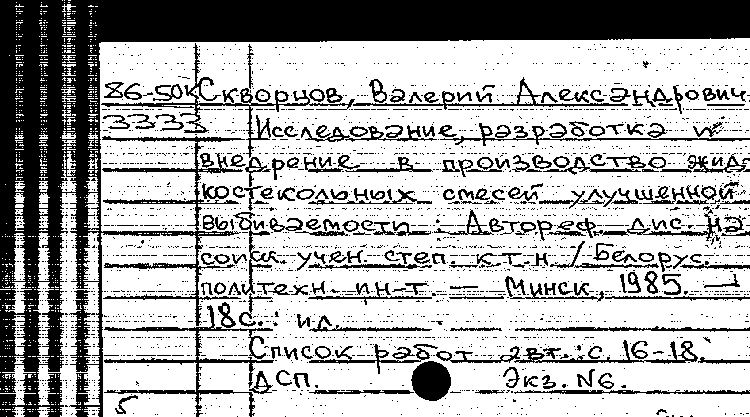 86-50к Скворцов, Валерий Александрович
3333 Исследование, разработка и
внедрение в производство жид-
костекольных смесей улучшенной
выбиваемости : Автореф. дис. на
соиск. учен. степ. к.т.н. / Белорус.
политехн. ин-т. — Минск, 1985. —
18с. : ил.
Список работ авт.: с. 16-18.
ДСП. Экз. N6.
5